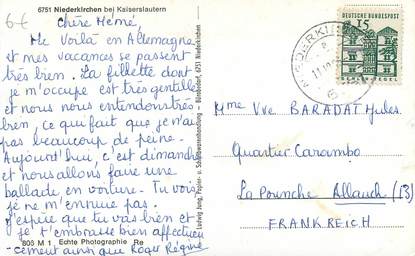 6751 Niederkirchen bei Kaiserslautern
6€
Chère Mémé,
Me voilà en Allemagne
et mes vacances se passent
très bien. La fillette dont
je m'occupe est très gentille
et nous nous entendons très
bien, ce qui fait que je n'ai
pas beaucoup de peine.
Aujourd'hui, c'est dimanche
et nous allons faire une
ballade en voiture. Tu vois
je ne m'ennuie pas.
J'espère que tu vas bien et
je t'embrasse bien affectueu-
cement ainsi que Roger Régine
805 M 1 Echte Photographie Re
Ludwig Jung, Papier- u. Schreibwarenhandlung - Bürobedarf, 6751 Niederkirchen
DEUTSCHE BUNDESPOST
15
TEGEL
NIEDERKIRCH
Mme Vve BARADAT Jules
Quartier Carombo
La Pounche Allauch (13)
FRANKREICH